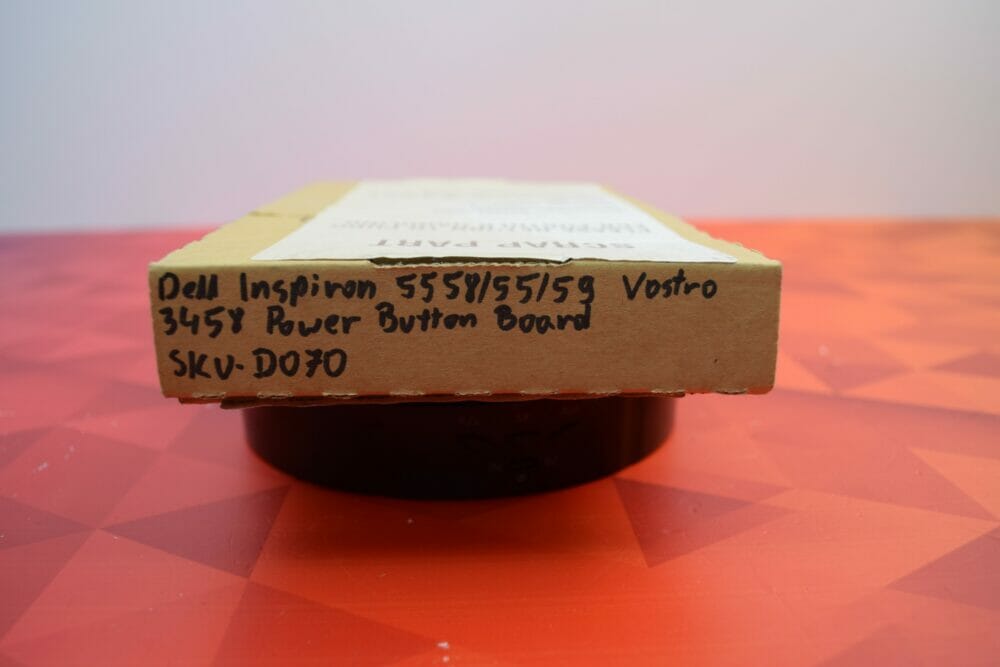 SCRAP PART
Dell Inspiron 5558/55/59 Vostro
3458 Power Button Board
SKU-D070